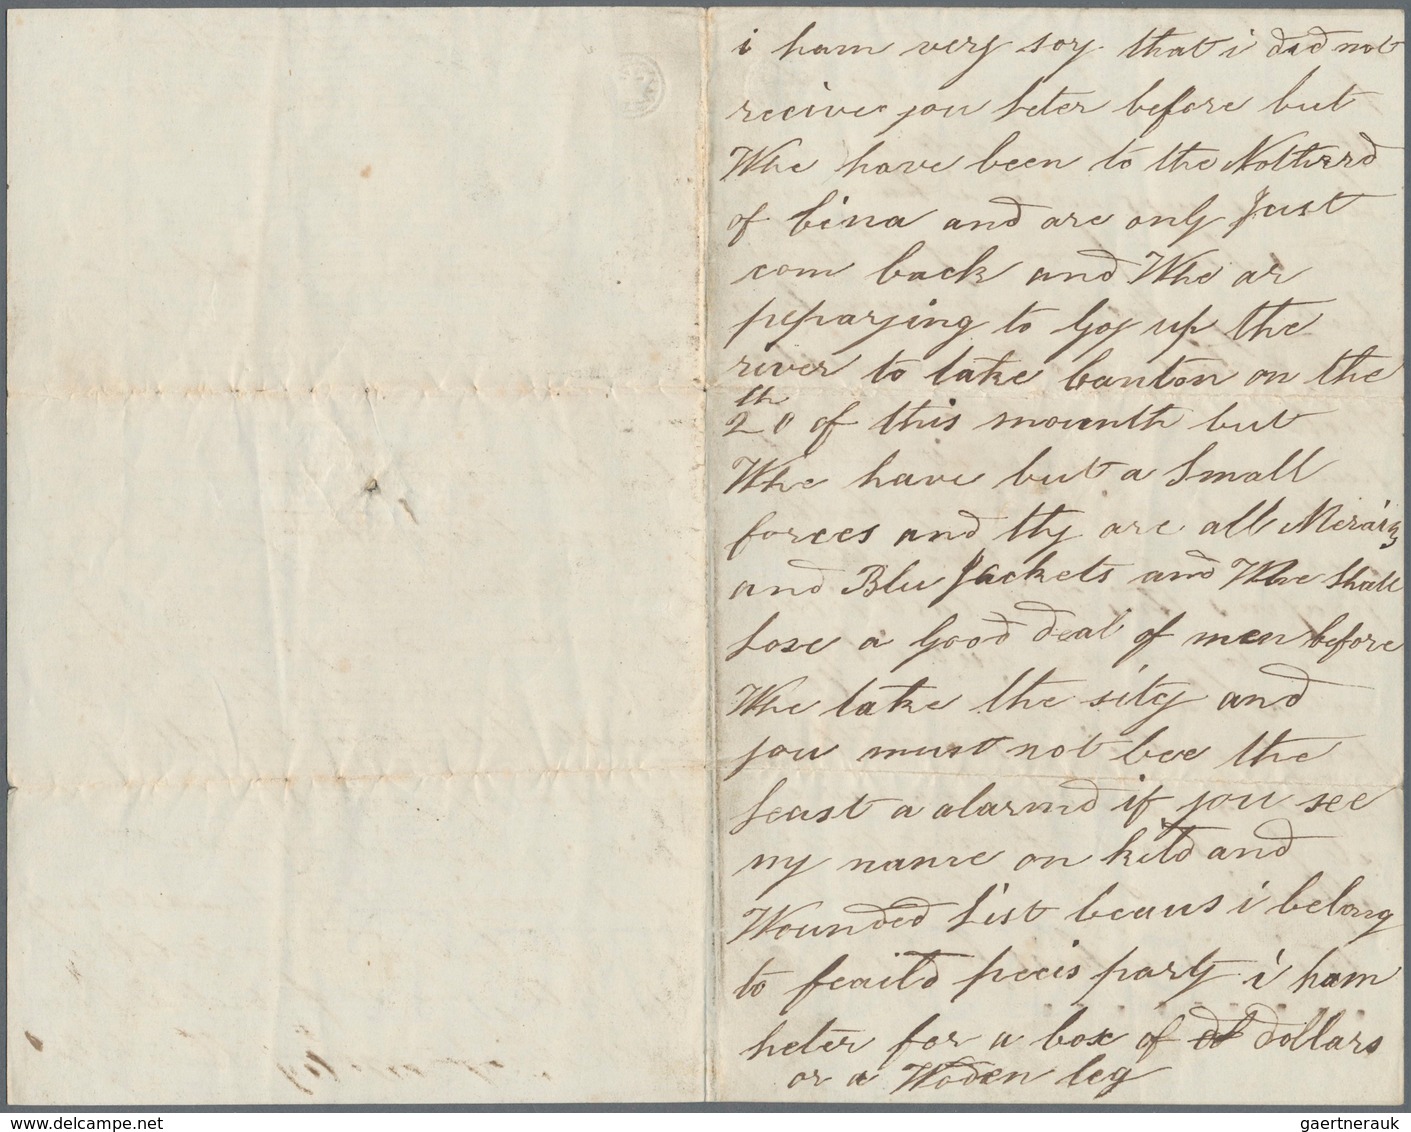 i ham very sory that i did not
recive you leter before but
Whe have been to the Notherd
of Cina and are only Just
com back and Whe ar
peparying to Goy up the
river to take Canton on the
20th of this mounth but
Whe have but a Small
forces and thy are all
and Blu Jackets and Whe Shall
Lose a Good deal of men before
Whe take the sity and
you must not bee the
Least a alarmd if you see
my name on kild and
Wounded List beaus i belong
to feaild peeis party i ham
heter for a box of dollars
or a Woden leg
gaertnerauk.com